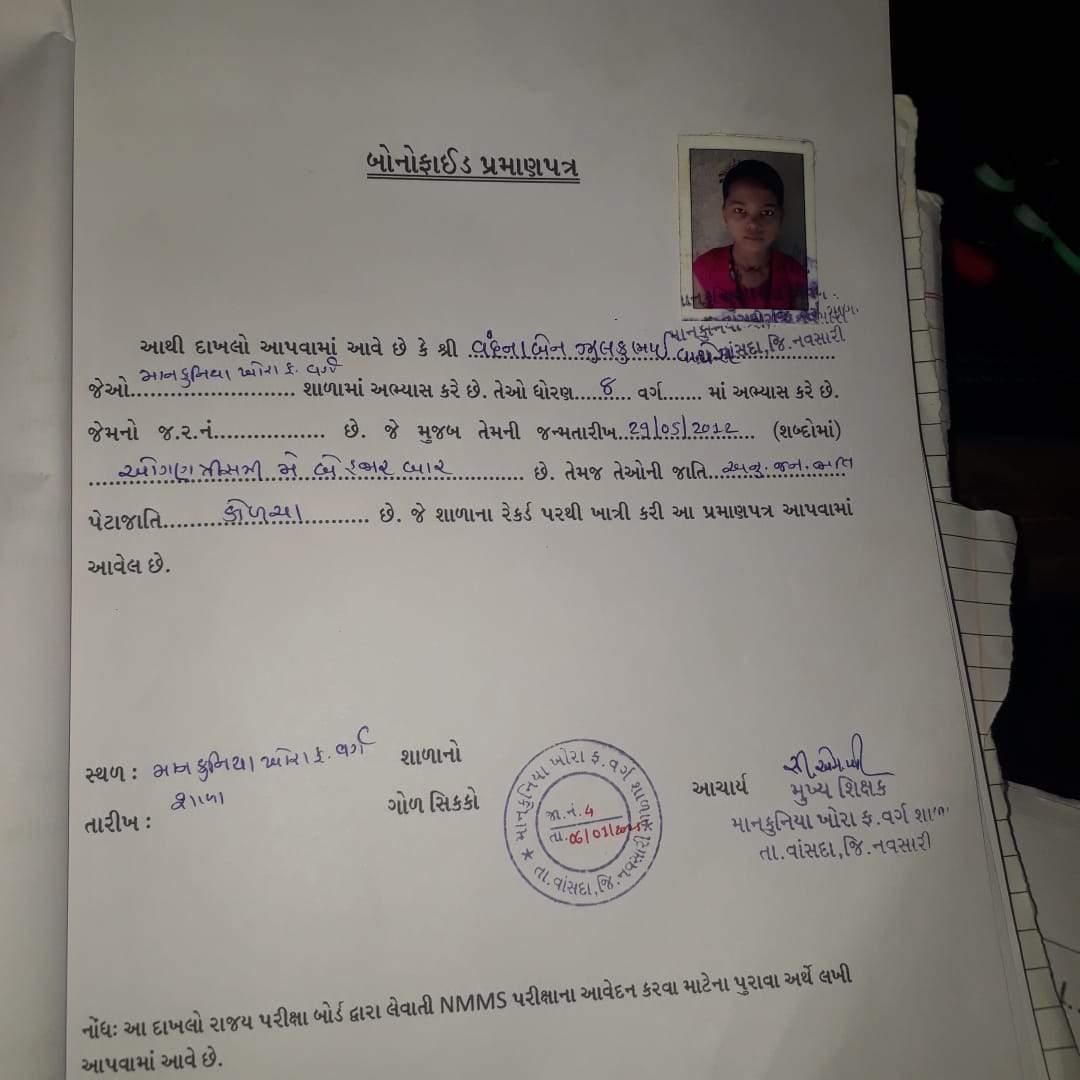 બોનોફાઈડ પ્રમાણપત્ર
આથી દાખલો આપવામાં આવે છે કે શ્રી વંદનાબેન ઝુલકુભાઈ
માનકુનિયા
તા.વાંસદા,જિ.નવસારી
માનકુનિયા ખોરા ફ. વર્ગ
જેઓ........................ શાળામાં અભ્યાસ કરે છે. તેઓ ધોરણ.....૮.... વર્ગ....... માં અભ્યાસ કરે છે.
જેમનો જ.ર.નં................. છે. જે મુજબ તેમની જન્મતારીખ..29/05/2012.... (શબ્દોમાં)
ઓગણત્રીસમી મે બે હજાર બાર ............... છે. તેમજ તેઓની જાતિ..અનુ. જન. જાતિ
પેટાજાતિ.........કોળચા.......... છે. જે શાળાના રેકર્ડ પરથી ખાત્રી કરી આ પ્રમાણપત્ર આપવામાં
આવેલ છે.
સ્થળ : માનકુનિયા ખોરા ફ. વર્ગ
શાળા
તારીખ :
શાળાનો
ગોળ સિકકો
★ માનકુનિયા ખોરા ફ.વર્ગ શાળા ★
જા.નં. 4
તા. 06/01/2025
તા.વાંસદા,જિ.નવસારી
આચાર્ય
મુખ્ય શિક્ષક
માનકુનિયા ખોરા ફ.વર્ગ શાળા
તા.વાંસદા,જિ.નવસારી
નોંધઃ આ દાખલો રાજય પરીક્ષા બોર્ડ દ્વારા લેવાતી NMMS પરીક્ષાના આવેદન કરવા માટેના પુરાવા અર્થે લખી
આપવામાં આવે છે.